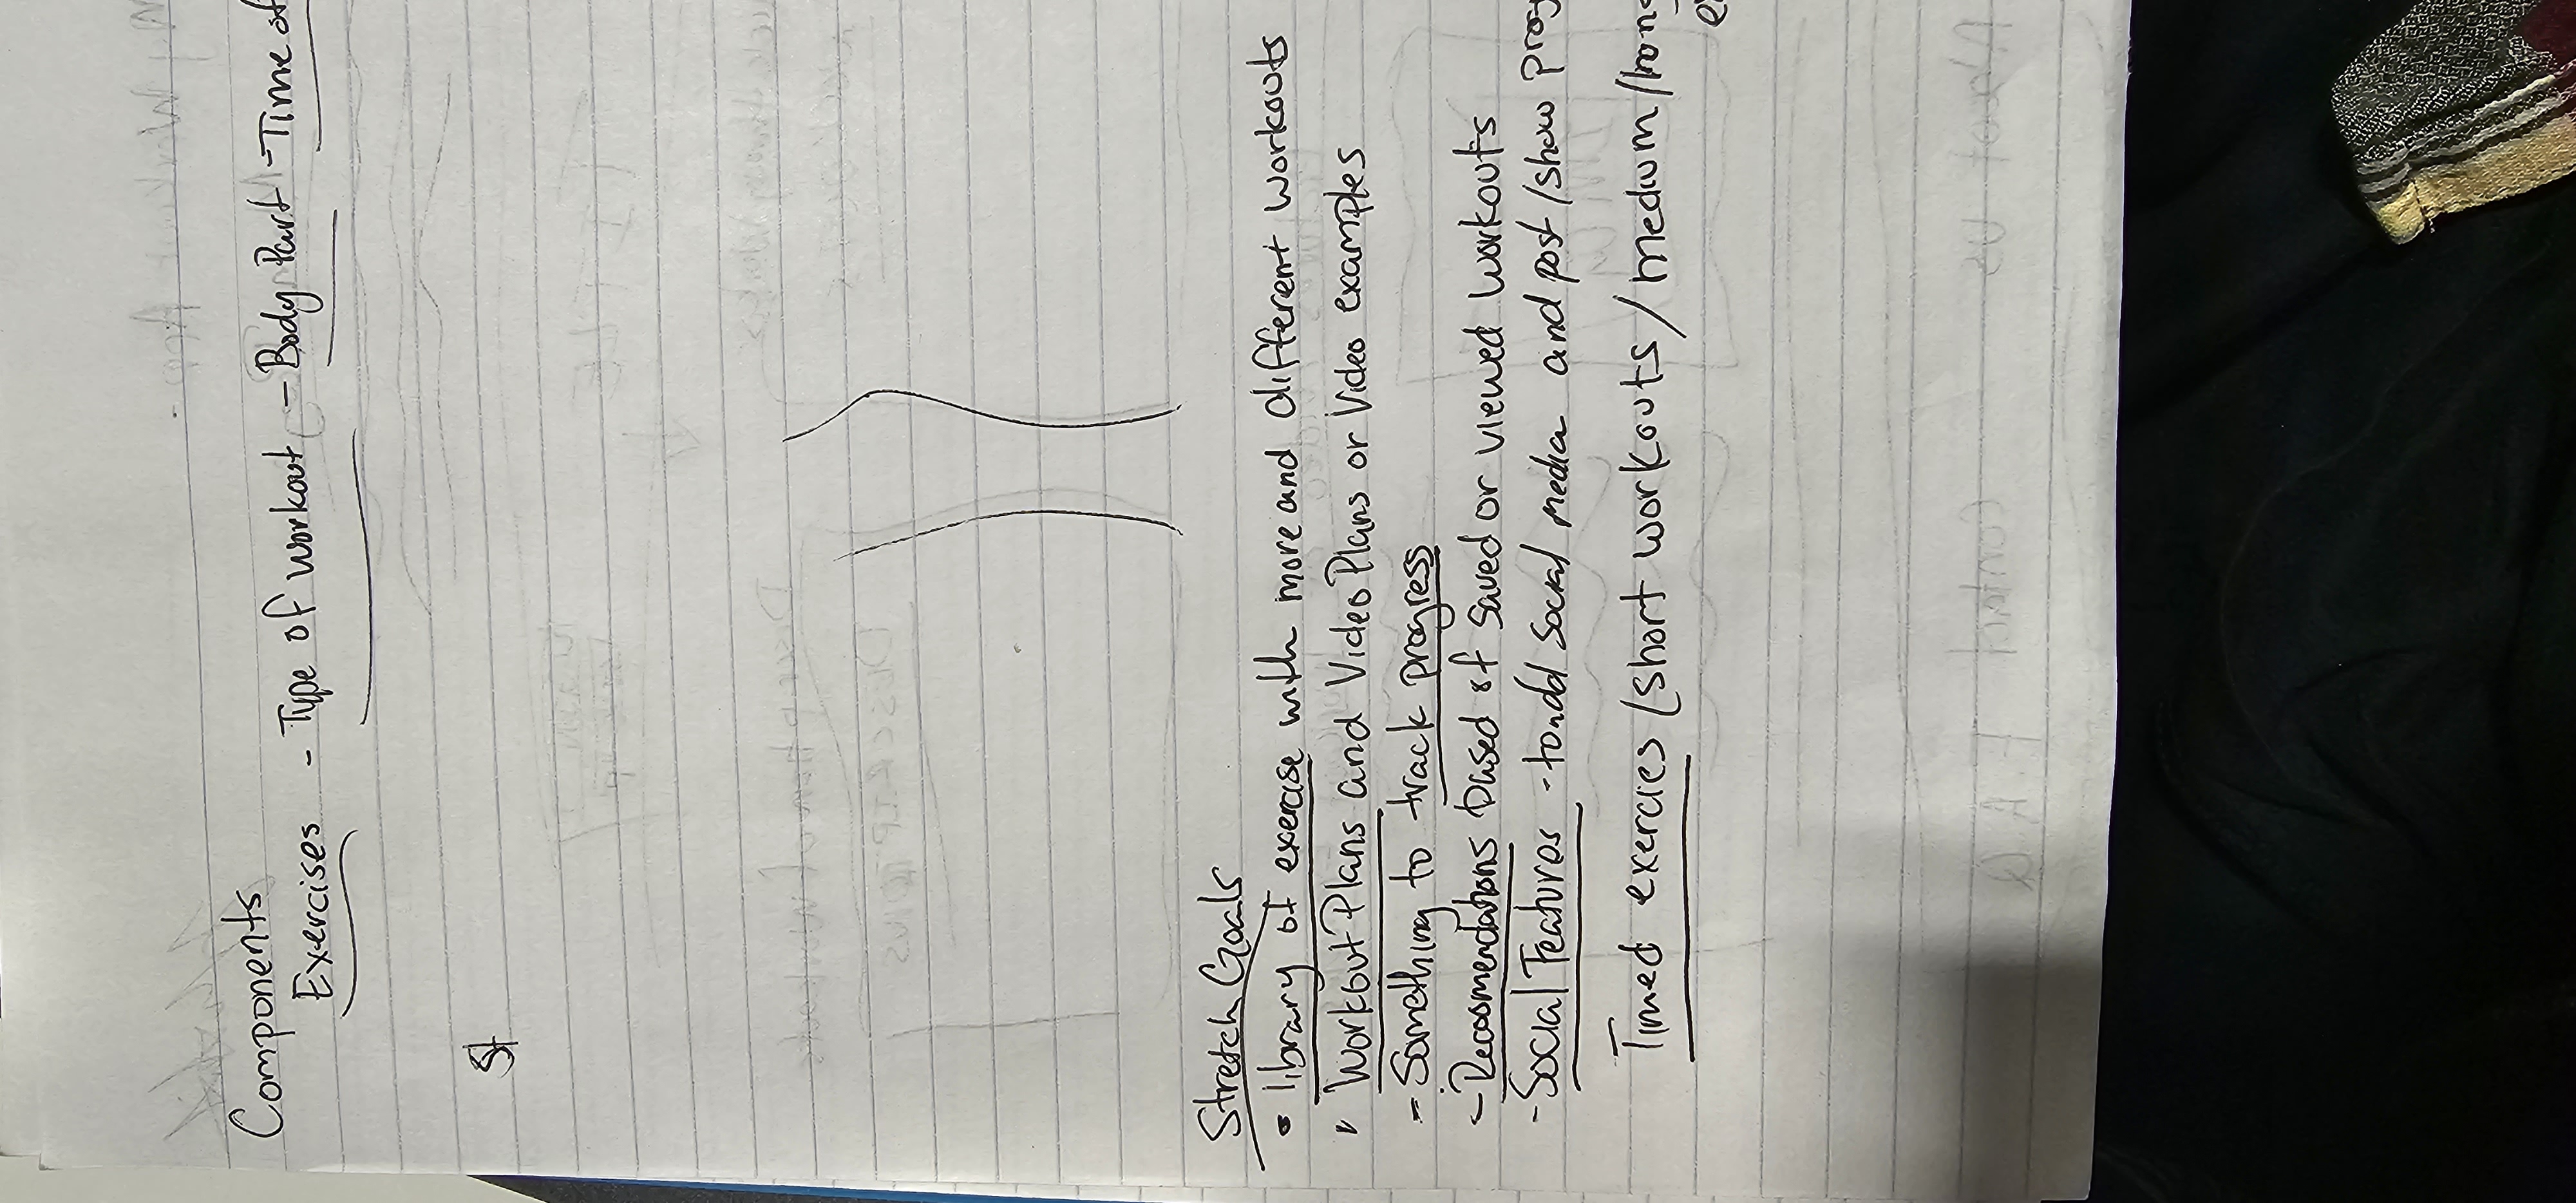 Components
Exercises - Type of workout - Body Part - Time of
St
Stretch Goals
• library of exercise with more and different workouts
• Workout Plans and Video Plans or Video examples
- Something to track progress
- Recoomendations based of saved or viewed workouts
- Social Features - to add social media and post/show prog
Timed exercies (short workouts / medium /